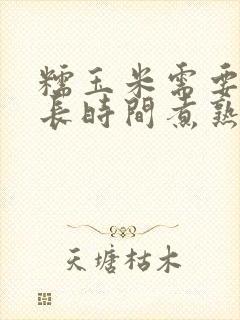 糯玉米需要
長時間煮熟
天塘枯木